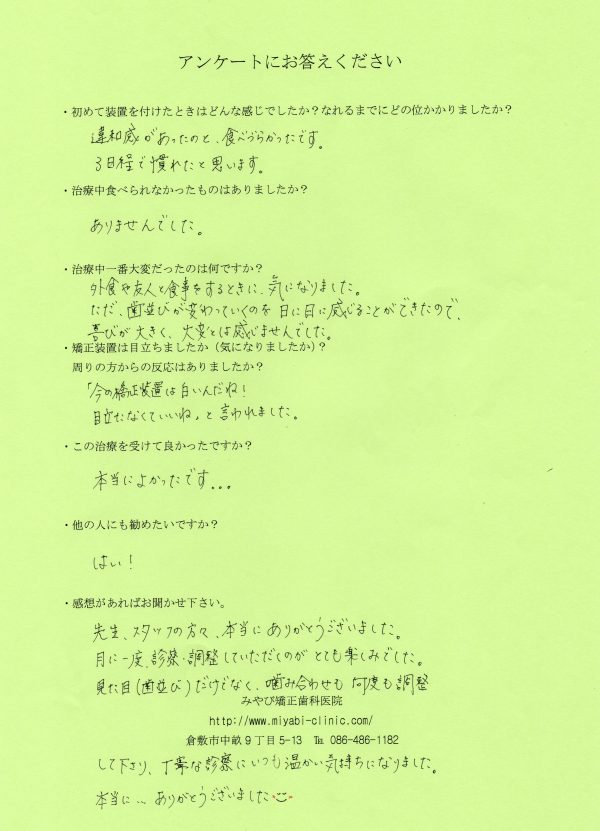 アンケートにお答えください
・初めて装置を付けたときはどんな感じでしたか？なれるまでにどの位かかりましたか？
違和感があったのと、食べづらかったです。
3日程で慣れたと思います。
・治療中食べられなかったものはありましたか？
ありませんでした。
・治療中一番大変だったのは何ですか？
外食や友人と食事をするときに、気になりました。
ただ、歯並びが変わっていくのを日に日に感じることができたので、
喜びが大きく、大変とは感じませんでした。
・矯正装置は目立ちましたか（気になりましたか）？
周りの方からの反応はありましたか？
「今の矯正装置は白いんだね！
目立たなくていいね」と言われました。
・この治療を受けて良かったですか？
本当によかったです...
・他の人にも勧めたいですか？
はい！
・感想があればお聞かせ下さい。
先生、スタッフの方々、本当にありがとうございました。
月に一度、診察・調整していただくのがとても楽しみでした。
見た目（歯並び）だけでなく、噛み合わせも何度も調整
みやび矯正歯科医院
http://www.miyabi-clinic.com/
倉敷市中畝9丁目5-13 ℡ 086-486-1182
して下さり、丁寧な診察にいつも温かい気持ちになりました。
本当に...ありがとうございました